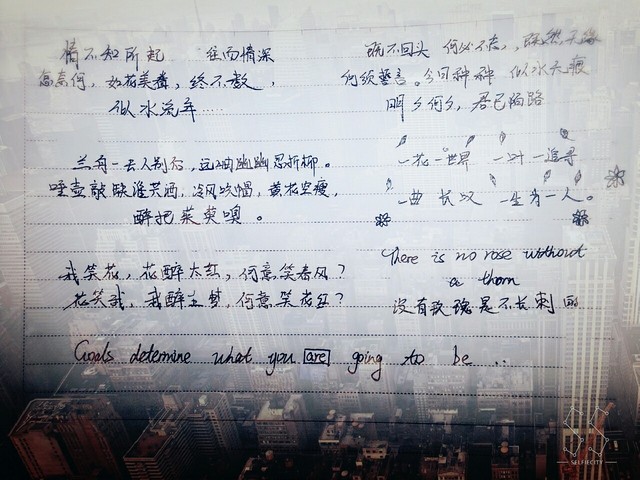 情不知所起 往而情深
怎奈何，如花美眷，终不敌，
似水流年……
既不回头 何必不忘，既然无缘
何须誓言。今日种种 似水无痕
明夕何夕，君已陌路
兰舟一去人别后，远
唾壶敲缺谁共酒，冷风吹帽，黄花空瘦，
醉把茱萸嗅。
一花一世界 一叶一追寻
一曲 长叹 一生为一人。
我笑花，花醉太红，何意笑春风？
花笑我，我醉立梦，何意笑花红？
There is no rose without
a thorn
没有玫瑰是不长刺的
Goals determine what you are going to be ..
SELFIECITY